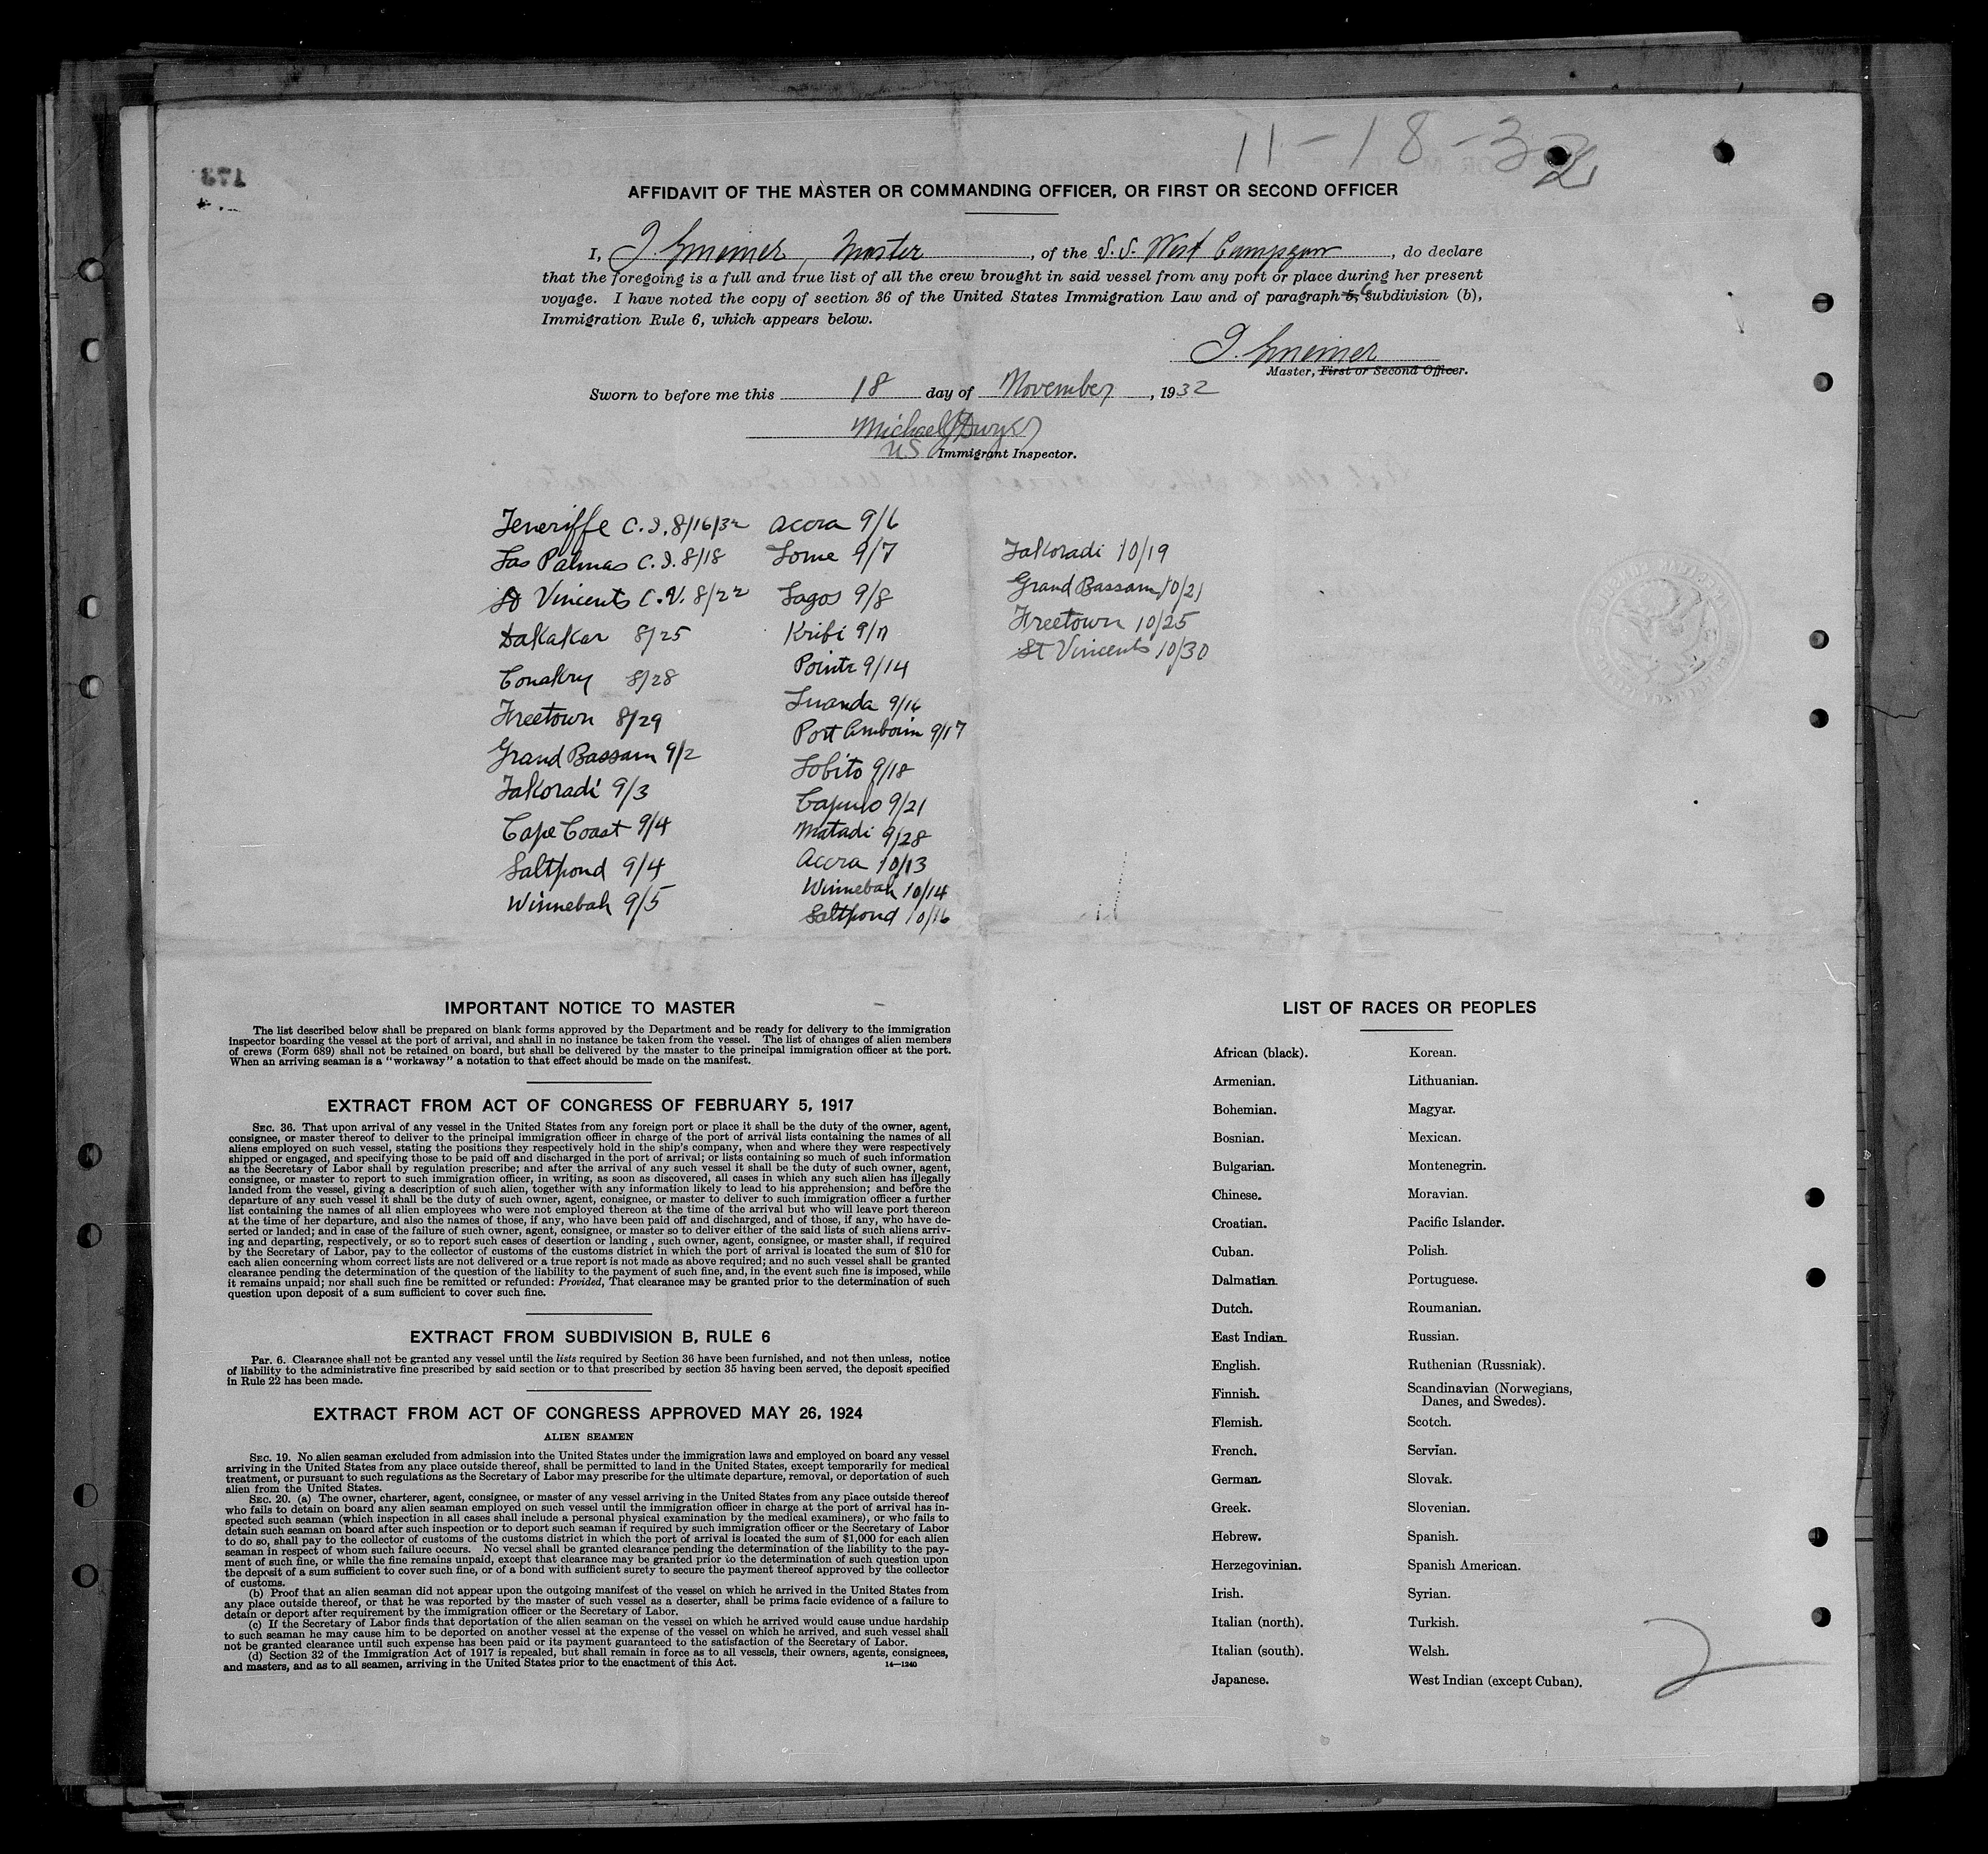 11-18-32
AFFIDAVIT OF THE MASTER OR COMMANDING OFFICER, OR FIRST OR SECOND OFFICER
I, Master, of the S.S. West, do declare
that the foregoing is a full and true list of all the crew brought in said vessel from any port or place during her present
voyage. I have noted the copy of section 36 of the United States Immigration Law and of paragraph 5, 6 subdivision (b),
Immigration Rule 6, which appears below.
Master, First or Second Officer.
Sworn to before me this 18 day of November, 1932
Michael J Dwyer
US Immigrant Inspector.
Teneriffe C.I. 8/16/32
Las Palmas C.I. 8/18
St Vincents C.V. 8/22
Dakakar 8/25
Conakry 8/28
Freetown 8/29
Grand Bassam 9/2
Takoradi 9/3
Cape Coast 9/4
Saltpond 9/4
Winnebah 9/5
Accra 9/6
Lome 9/7
Lagos 9/8
Kribi
Pointe 9/14
Luanda 9/16
Port Amboim 9/17
Lobito 9/18
Capulo 9/21
Matadi 9/28
Accra 10/13
Winnebah 10/14
Saltpond 10/16
Takoradi 10/19
Grand Bassam 10/21
Freetown 10/25
St Vincents 10/30
IMPORTANT NOTICE TO MASTER
The list described below shall be prepared on blank forms approved by the Department and be ready for delivery to the immigration
inspector boarding the vessel at the port of arrival, and shall in no instance be taken from the vessel. The list of changes of alien members
of crews (Form 689) shall not be retained on board, but shall be delivered by the master to the principal immigration officer at the port.
When an arriving seaman is a "workaway" a notation to that effect should be made on the manifest.
EXTRACT FROM ACT OF CONGRESS OF FEBRUARY 5, 1917
SEC. 36. That upon arrival of any vessel in the United States from any foreign port or place it shall be the duty of the owner, agent,
consignee, or master thereof to deliver to the principal immigration officer in charge of the port of arrival lists containing the names of all
aliens employed on such vessel, stating the positions they respectively hold in the ship's company, when and where they were respectively
shipped or engaged, and specifying those to be paid off and discharged in the port of arrival; or lists containing so much of such information
as the Secretary of Labor shall by regulation prescribe; and after the arrival of any such vessel it shall be the duty of such owner, agent,
consignee, or master to report to such immigration officer, in writing, as soon as discovered, all cases in which any such alien has illegally
landed from the vessel, giving a description of such alien, together with any information likely to lead to his apprehension; and before the
departure of any such vessel it shall be the duty of such owner, agent, consignee, or master to deliver to such immigration officer a further
list containing the names of all alien employees who were not employed thereon at the time of the arrival but who will leave port thereon
at the time of her departure, and also the names of those, if any, who have been paid off and discharged, and of those, if any, who have de-
serted or landed; and in case of the failure of such owner, agent, consignee, or master so to deliver either of the said lists of such aliens arriv-
ing and departing, respectively, or so to report such cases of desertion or landing , such owner, agent, consignee, or master shall, if required
by the Secretary of Labor, pay to the collector of customs of the customs district in which the port of arrival is located the sum of $10 for
each alien concerning whom correct lists are not delivered or a true report is not made as above required; and no such vessel shall be granted
clearance pending the determination of the question of the liability to the payment of such fine, and, in the event such fine is imposed, while
it remains unpaid; nor shall such fine be remitted or refunded: Provided, That clearance may be granted prior to the determination of such
question upon deposit of a sum sufficient to cover such fine.
EXTRACT FROM SUBDIVISION B, RULE 6
Par. 6. Clearance shall not be granted any vessel until the lists required by Section 36 have been furnished, and not then unless, notice
of liability to the administrative fine prescribed by said section or to that prescribed by section 35 having been served, the deposit specified
in Rule 22 has been made.
EXTRACT FROM ACT OF CONGRESS APPROVED MAY 26, 1924
ALIEN SEAMEN
SEC. 19. No alien seaman excluded from admission into the United States under the immigration laws and employed on board any vessel
arriving in the United States from any place outside thereof, shall be permitted to land in the United States, except temporarily for medical
treatment, or pursuant to such regulations as the Secretary of Labor may prescribe for the ultimate departure, removal, or deportation of such
alien from the United States.
SEC. 20. (a) The owner, charterer, agent, consignee, or master of any vessel arriving in the United States from any place outside thereof
who fails to detain on board any alien seaman employed on such vessel until the immigration officer in charge at the port of arrival has in-
spected such seaman (which inspection in all cases shall include a personal physical examination by the medical examiners), or who fails to
detain such seaman on board after such inspection or to deport such seaman if required by such immigration officer or the Secretary of Labor
to do so, shall pay to the collector of customs of the customs district in which the port of arrival is located the sum of $1,000 for each alien
seaman in respect of whom such failure occurs. No vessel shall be granted clearance pending the determination of the liability to the pay-
ment of such fine, or while the fine remains unpaid, except that clearance may be granted prior to the determination of such question upon
the deposit of a sum sufficient to cover such fine, or of a bond with sufficient surety to secure the payment thereof approved by the collector
of customs.
(b) Proof that an alien seaman did not appear upon the outgoing manifest of the vessel on which he arrived in the United States from
any place outside thereof, or that he was reported by the master of such vessel as a deserter, shall be prima facie evidence of a failure to
detain or deport after requirement by the immigration officer or the Secretary of Labor.
(c) If the Secretary of Labor finds that deportation of the alien seaman on the vessel on which he arrived would cause undue hardship
to such seaman he may cause him to be deported on another vessel at the expense of the vessel on which he arrived, and such vessel shall
not be granted clearance until such expense has been paid or its payment guaranteed to the satisfaction of the Secretary of Labor.
(d) Section 32 of the Immigration Act of 1917 is repealed, but shall remain in force as to all vessels, their owners, agents, consignees,
and masters, and as to all seamen, arriving in the United States prior to the enactment of this Act. 14—1240
LIST OF RACES OR PEOPLES
African (black).
Armenian.
Bohemian.
Bosnian.
Bulgarian.
Chinese.
Croatian.
Cuban.
Dalmatian.
Dutch.
East Indian.
English.
Finnish.
Flemish.
French.
German.
Greek.
Hebrew.
Herzegovinian.
Irish.
Italian (north).
Italian (south).
Japanese.
Korean.
Lithuanian.
Magyar.
Mexican.
Montenegrin.
Moravian.
Pacific Islander.
Polish.
Portuguese.
Roumanian.
Russian.
Ruthenian (Russniak).
Scandinavian (Norwegians,
Danes, and Swedes).
Scotch.
Servian.
Slovak.
Slovenian.
Spanish.
Spanish American.
Syrian.
Turkish.
Welsh.
West Indian (except Cuban).
2